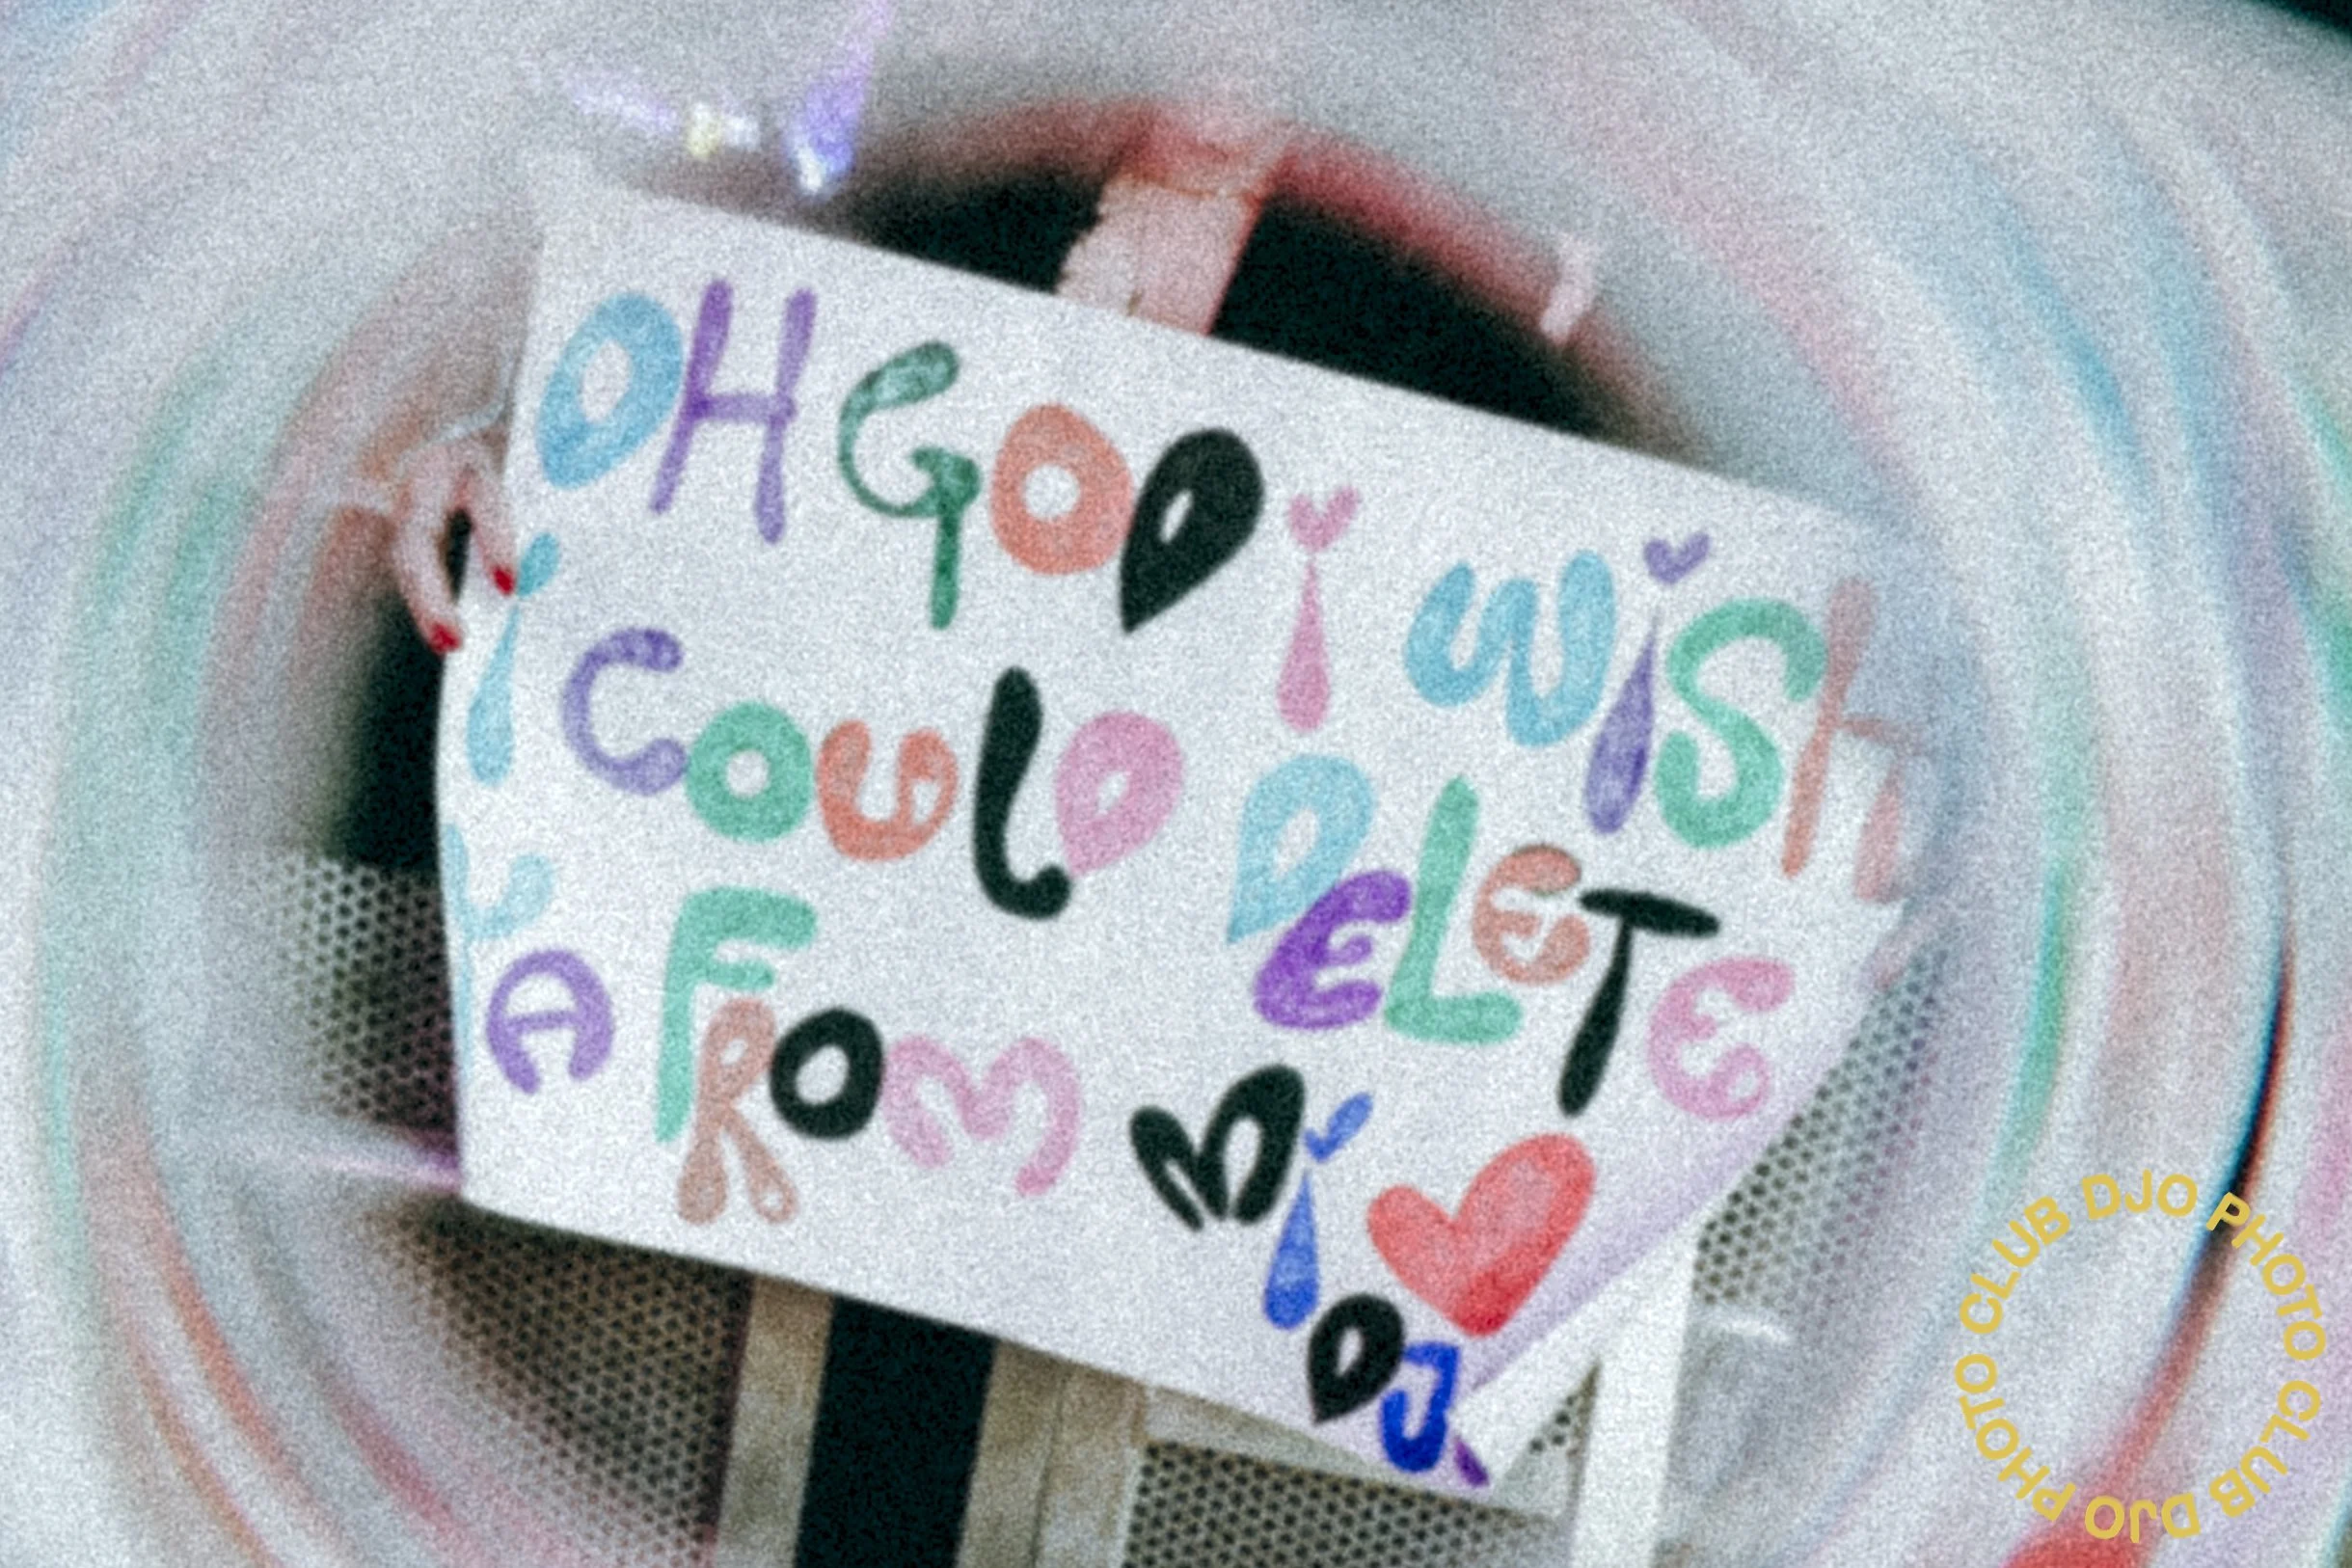 OH GOD i WiSh
i COULD DELETE
YA FROM Mi
DJ
CLUB DJO PHOTO CLUB DJO PHOTO